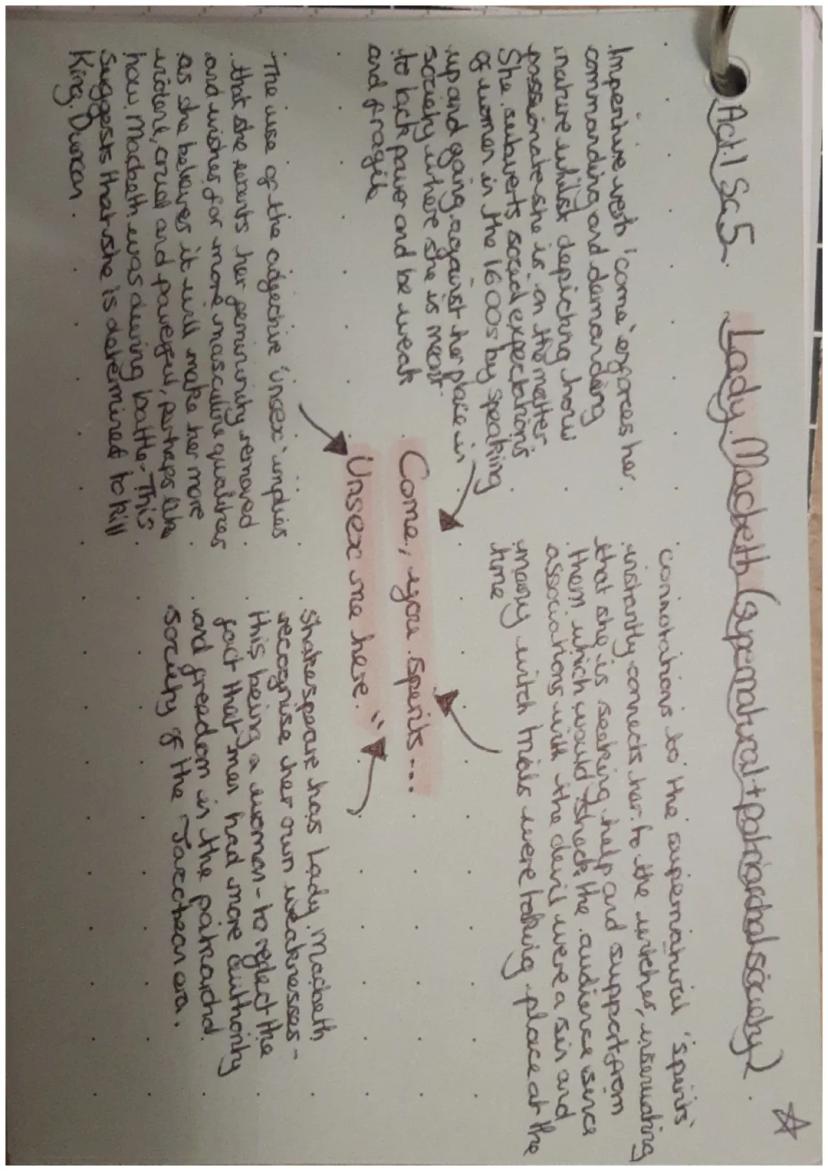 Act 1 Sc 5. Lady Macbeth (supernatural + patriarchal society)
Imperitive verb 'come' enforces her
commanding and demanding
nature whilst depicting how
passionate she is on the matter
She subverts social expectations
of women in the 1600s by speaking
up and going against her place in
society where she is meant
to lack power and be weak
and fragile
connotations to the supernatural 'spirits'
instantly connects her to the witches, insinuating
that she is seeking help and support from
them which would shock the audience since
associations with the devil were a sin and
many witch trials were taking place at the
time
Come, you spirits...
Unsex me here."
The use of the adjective 'unsex' implies
that she wants her femininity removed
and wishes for more masculine qualities
as she believes it will make her more
violent, cruel and powerful, perhaps like
how Macbeth was during battle - This
suggests that she is determined to kill
King Duncan.
Shakespeare has Lady Macbeth
recognise her own weaknesses -
this being a women - to reflect the
fact that men had more authority
and freedom in the patriarchal
society of the Jacobean era.